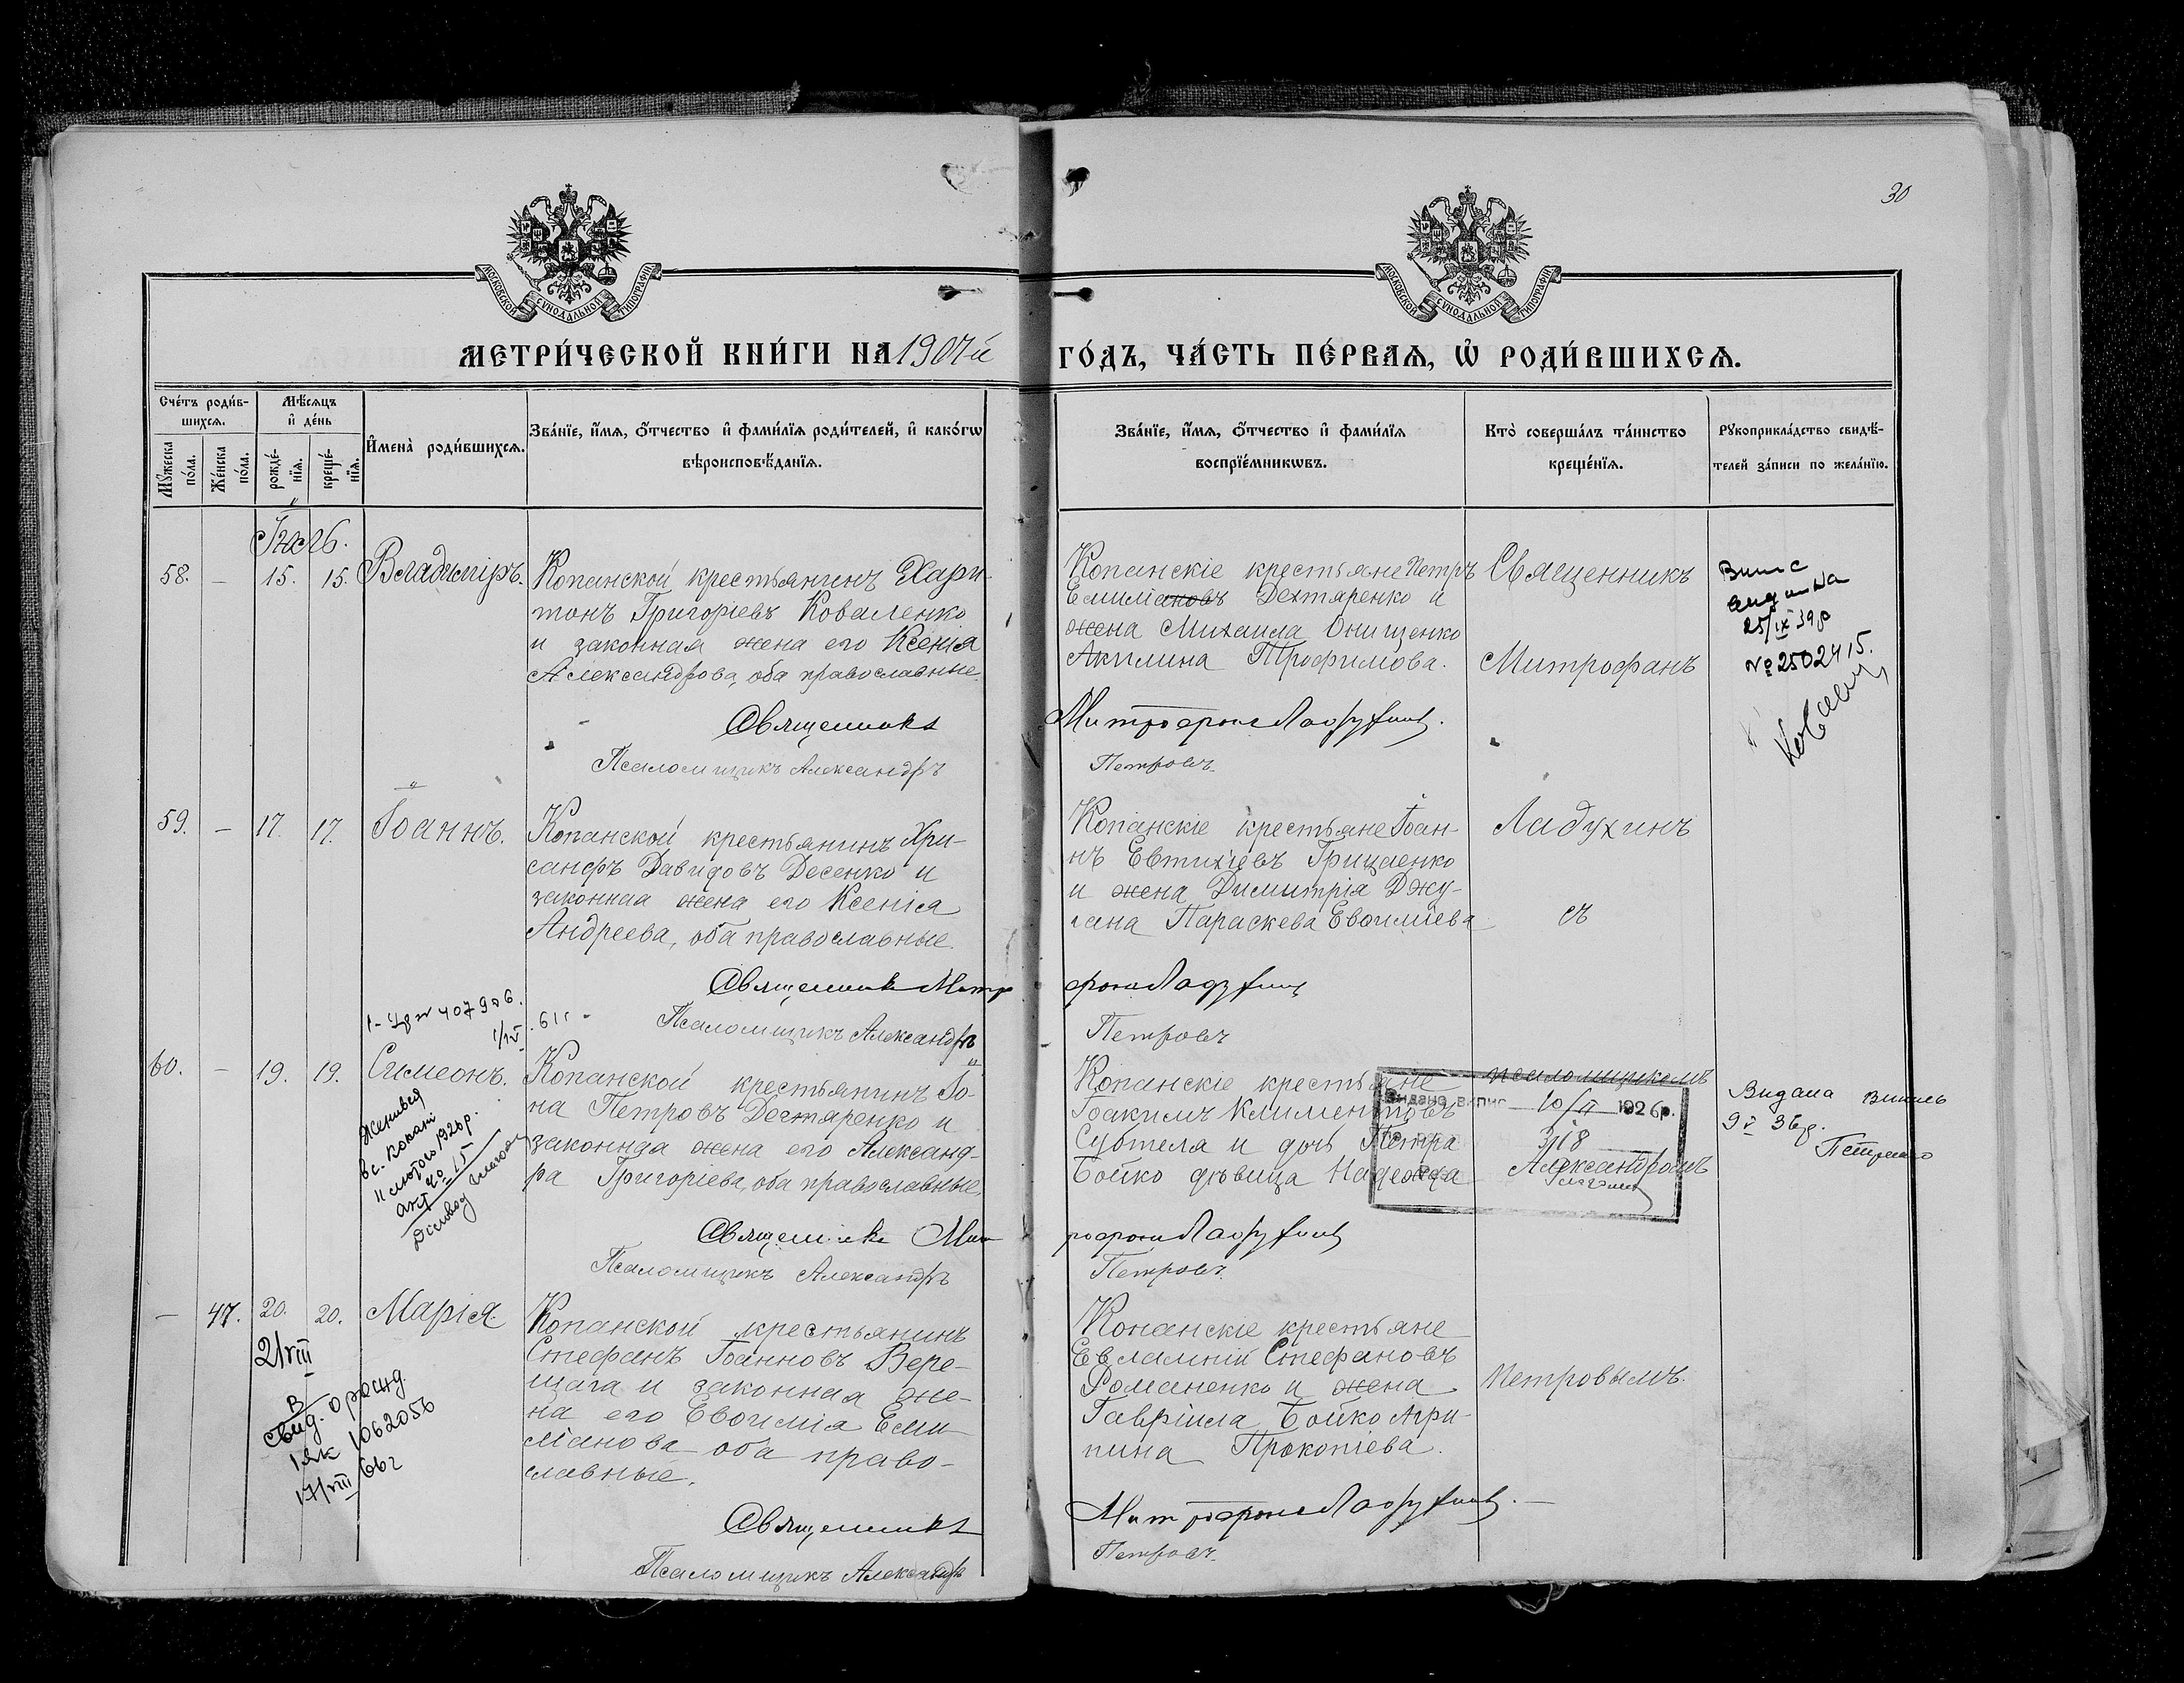 30
МОСКОВСКОЙ СѴНОДАЛЬНОЙ ТИПОГРАФІИ
МОСКОВСКОЙ СѴНОДАЛЬНОЙ ТИПОГРАФІИ
МЕТРИ́ЧЕСКОЙ КНИ́ГИ НА 1907й ГО́ДЪ, ЧА́СТЬ ПЕ́РВАЯ, Ѡ҆ РОДИ́ВШИХСЯ.
Сче́тъ роди́в-
шихся.
Мꙋжеска по́ла.
Же́нска по́ла.
Мѣ́сяцъ
и҆ де́нь
рожде́-
нїя.
креще́-
нїя.
И҆мена̀ роди́вшихся.
Зва́нїе, и҆́мя, ѻ҆́тчество и҆ фами́лїя роди́телей, и҆ како́гѡ
вѣроисповѣ́данїя.
Зва́нїе, и҆́мя, ѻ҆́тчество и҆ фами́лїя
воспрїе́мникѡвъ.
Кто̀ соверша́лъ та́инство
креще́нїя.
Рꙋкоприкла́дство свидѣ́-
телей за́писи по жела́нїю.
Іюль.
58. – 15. 15. Владиміръ.
Копанской крестьянинъ Хари-
тонъ Григоріевъ Коваленко
и законная жена его Ксенія
Александрова, оба православные.
Копанскіе крестьяне Петръ
Емиліановъ Дехтяренко и
жена Михаила Онищенко
Акилина Трофимова.
Священникъ
Митрофанъ
Випис
видана
25/IX 39р
№ 2502415.
Священникъ Митрофанъ Ладухинъ.
Псаломщикъ Александръ Петровъ.
59. – 17. 17. Іоаннъ.
Копанской крестьянинъ Хри-
санфъ Давидовъ Десенко и
законная жена его Ксенія
Андреева, оба православные.
Копанскіе крестьяне Іоан-
нъ Евтихіевъ Грицаенко
и жена Димитрія Джу-
гана Параскева Евфиміева
Ладухинъ
съ
Священникъ Митрофанъ Ладухинъ
Псаломщикъ Александръ Петровъ
60. – 19. 19. Симеонъ.
Копанской крестьянинъ Іо-
на Петровъ Дегтяренко и
законная жена его Александ-
ра Григоріева, оба православные.
Женився
в с. Копані
11 лютого 1926 р.
акт № 15
Діловод
Копанскіе крестьяне
Іоакимъ Климентовъ
Суботела и дочь Петра
Бойко дѣвица Надежда
псаломщикомъ
Александромъ
Видано випис 10/II 1926р.
318
Видана випись
9/V 36р.
Петренко
Священникъ Митрофанъ Ладухинъ
Псаломщикъ Александръ Петровъ.
– 47. 20. 20. Марія.
Копанской крестьянинъ
Стефанъ Іоанновъ Вере-
щага и законная же-
на его Евфимія Еми-
ліанова оба право-
славные.
21/VIII
свид. о рожд.
1 ЯК 1062056
17/VIII 66г
Копанскіе крестьяне
Евлампій Стефановъ
Романенко и жена
Гавріила Бойко Агри-
пина Прокопіева.
Петровымъ.
Священникъ Митрофанъ Ладухинъ.
Псаломщикъ Александръ Петровъ.